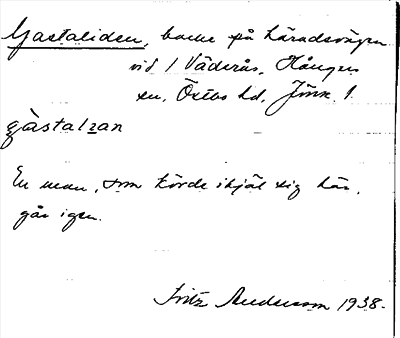 Gastaliden, backe på häradsvägen
vid / Väderås, Hångers
sn, Östbo hd, Jönk. l.
gàstalɩan
En man, som körde ihjäl sig här,
går igen.
Fritz Andersson 1938.